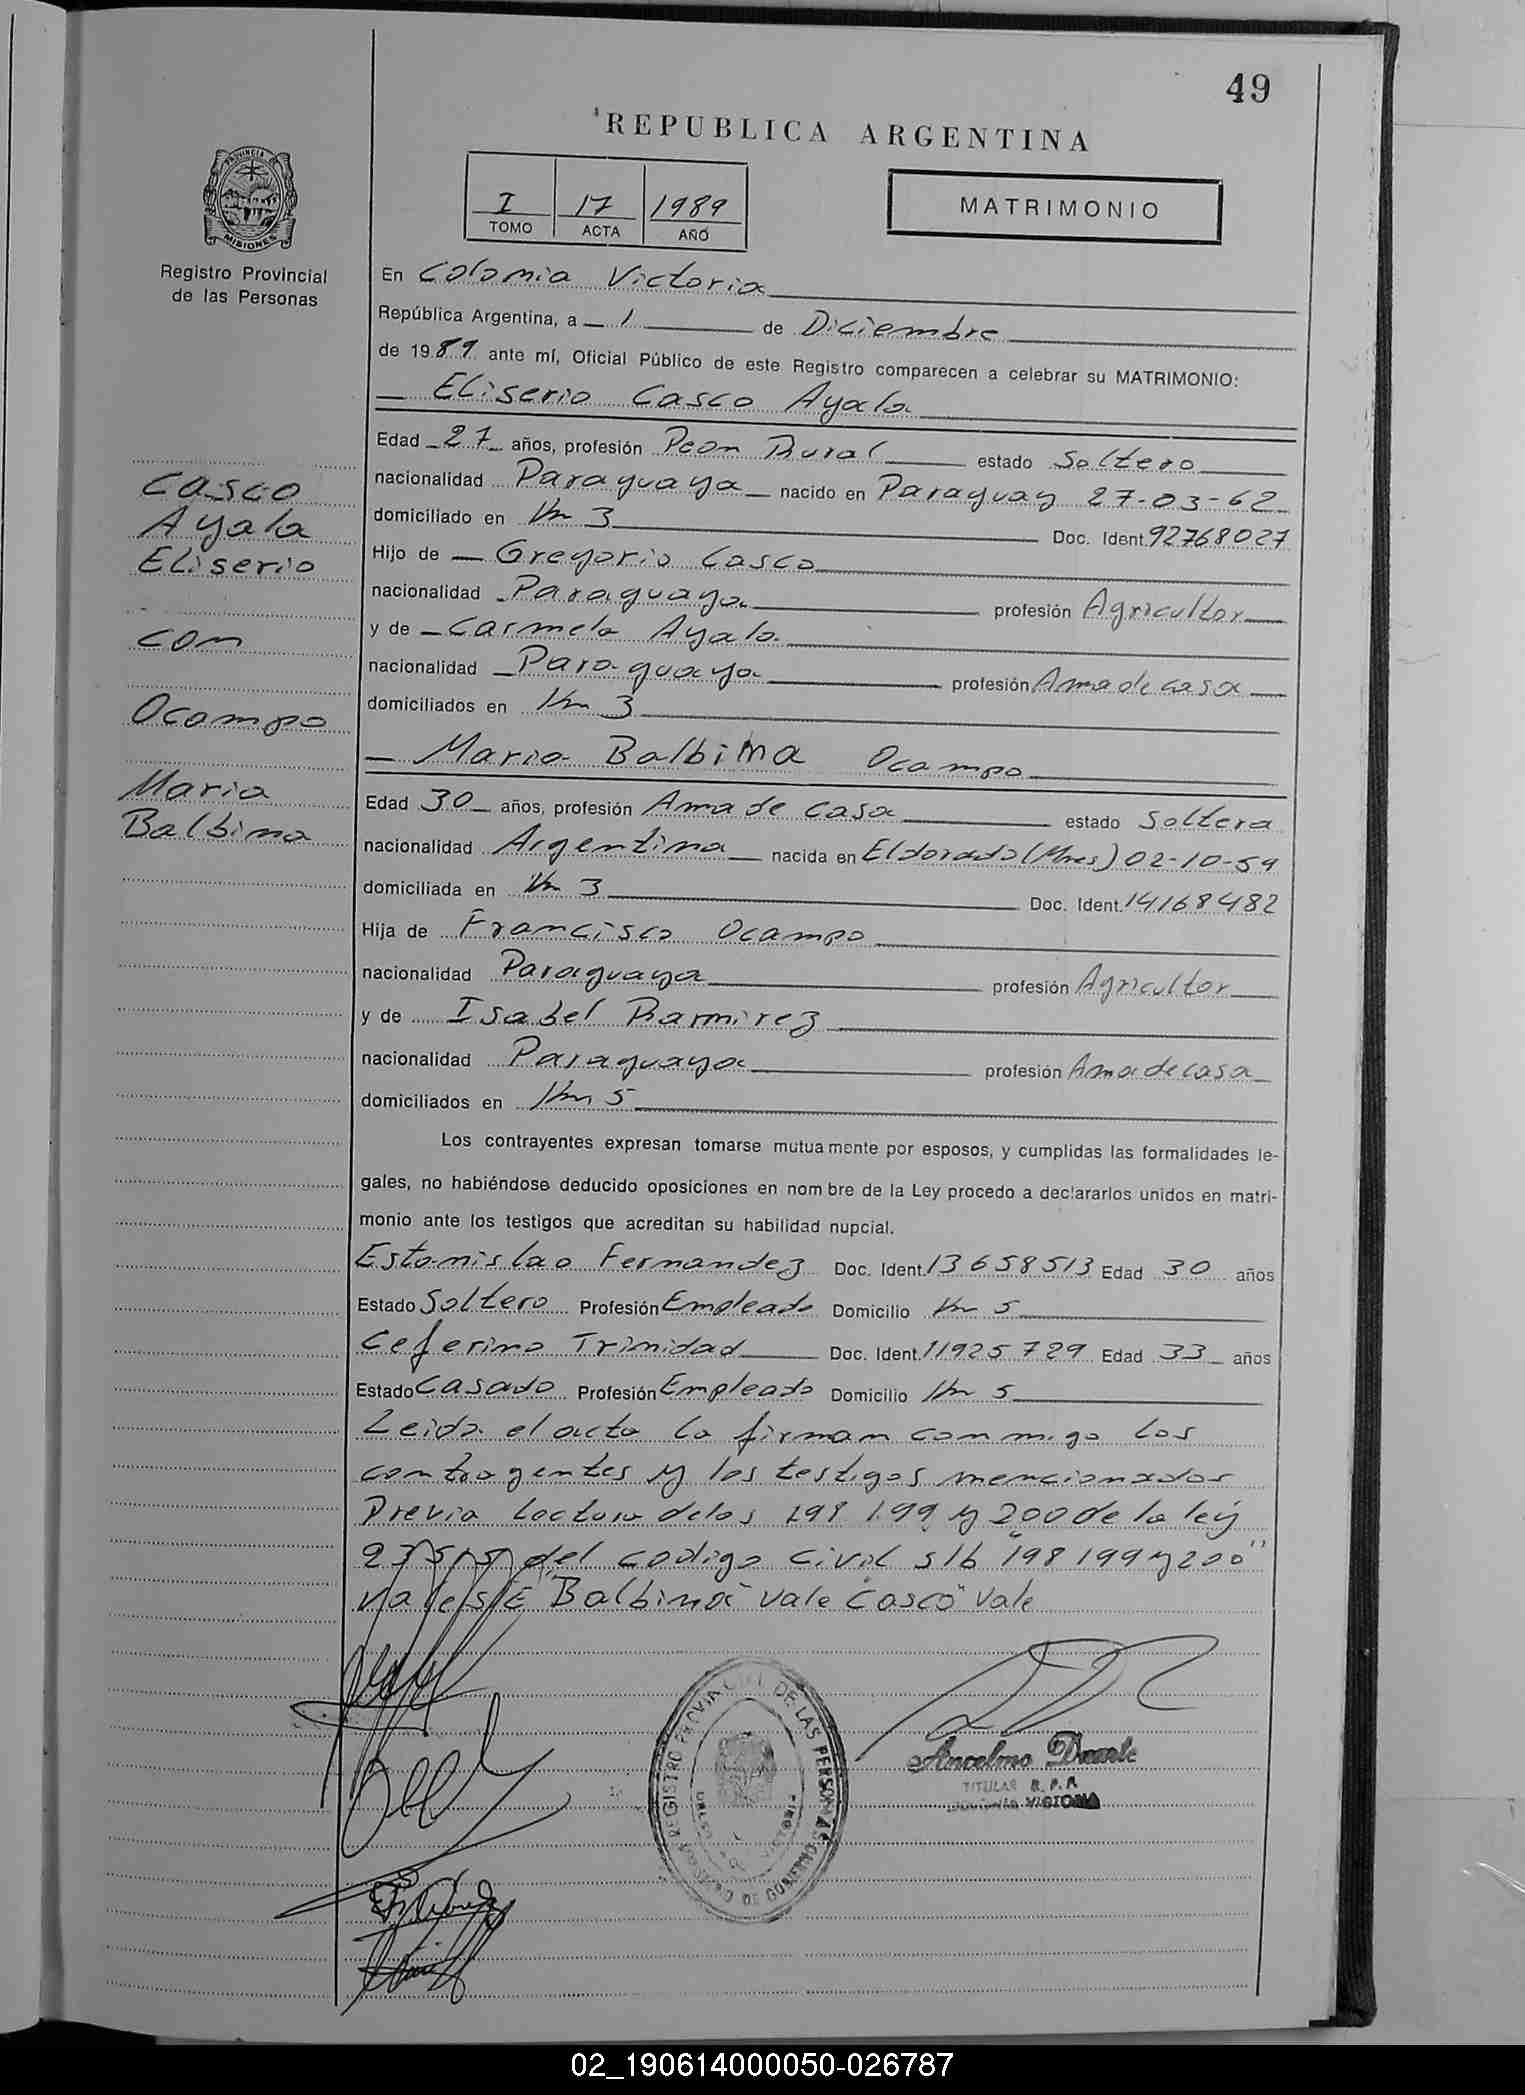 49
REPUBLICA ARGENTINA
PROVINCIA DE
MISIONES
Registro Provincial
de las Personas
I 17 1989
TOMO ACTA AÑO
MATRIMONIO
En Colonia Victoria
República Argentina, a 1 de Diciembre
de 1989 ante mí, Oficial Público de este Registro comparecen a celebrar su MATRIMONIO:
Eliserio Casco Ayala
Edad 27 años, profesión Peon Rural estado Soltero
nacionalidad Paraguaya nacido en Paraguay 27-03-62
domiciliado en Km 3 Doc. Ident. 92768027
Hijo de Gregorio Casco
nacionalidad Paraguaya profesión Agricultor
y de Carmela Ayala
nacionalidad Paraguaya profesión Ama de casa
domiciliados en Km 3
Maria Balbina Ocampo
Edad 30 años, profesión Ama de casa estado Soltera
nacionalidad Argentina nacida en Eldorado (Mnes) 02-10-59
domiciliada en Km 3 Doc. Ident. 14168482
Hija de Francisco Ocampo
nacionalidad Paraguaya profesión Agricultor
y de Isabel Ramirez
nacionalidad Paraguaya profesión Ama de casa
domiciliados en Km 5
Casco
Ayala
Eliserio
con
Ocampo
Maria
Balbina
Los contrayentes expresan tomarse mutuamente por esposos, y cumplidas las formalidades le-
gales, no habiéndose deducido oposiciones en nombre de la Ley procedo a declararlos unidos en matri-
monio ante los testigos que acreditan su habilidad nupcial.
Estanislao Fernandez Doc. Ident. 13658513 Edad 30 años
Estado Soltero Profesión Empleado Domicilio Km 5
Ceferino Trinidad Doc. Ident. 11925729 Edad 33 años
Estado Casado Profesión Empleado Domicilio Km 5
Leida el acta la firman conmigo los
contragentes y los testigos mencionados
Previa Lectura de los 198 199 y 200 de la ley
del codigo civil s/b "198 199 y 200"
Vale S/E "Balbina" Vale "Casco" Vale
REGISTRO PROVINCIAL DE LAS PERSONAS
DE GOBIERNO
Anselmo Duarte
TITULAR R. P. P.
COLONIA VICTORIA
02_190614000050-026787